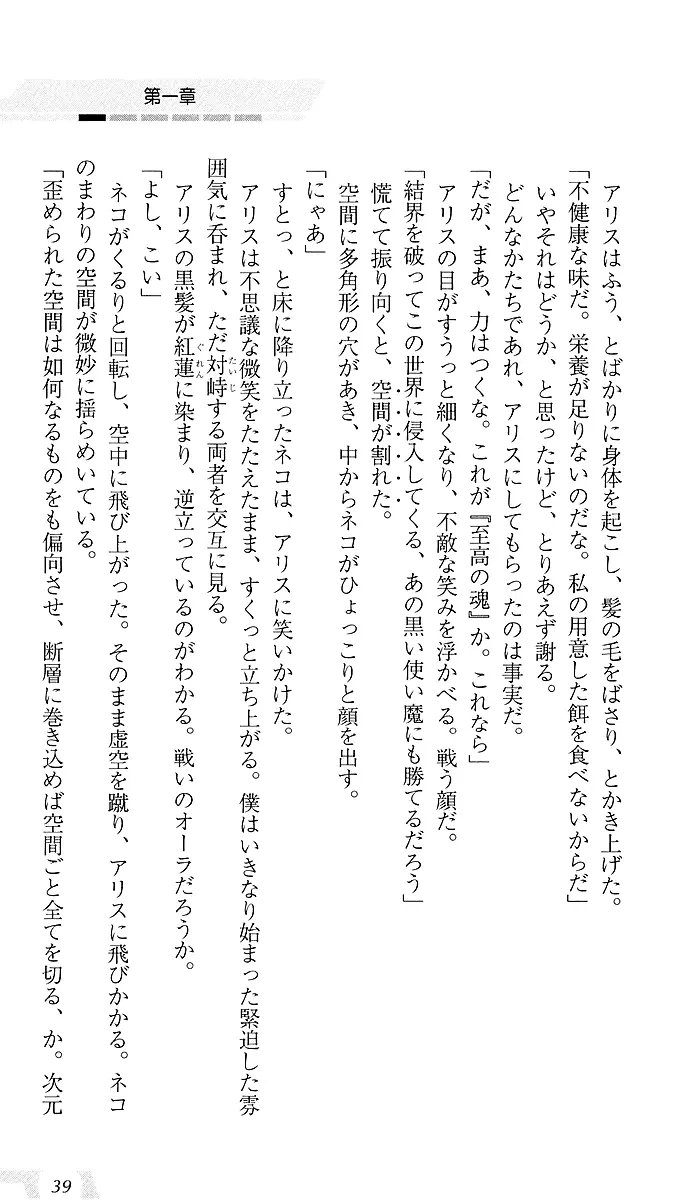 第一章
アリスはふう、とばかりに身体を起こし、髪の毛をばさり、とかき上げた。
「不健康な味だ。栄養が足りないのだな。私の用意した餌を食べないからだ」
いやそれはどうか、と思ったけど、とりあえず謝る。
どんなかたちであれ、アリスにしてもらったのは事実だ。
「だが、まあ、力はつくな。これが『至高の魂』か。これなら」
アリスの目がすうっと細くなり、不敵な笑みを浮かべる。戦う顔だ。
「結界を破ってこの世界に侵入してくる、あの黒い使い魔にも勝てるだろう」
慌てて振り向くと、空間が割れた。
空間に多角形の穴があき、中からネコがひょっこりと顔を出す。
「にゃあ」
すとっ、と床に降り立ったネコは、アリスに笑いかけた。
アリスは不思議な微笑をたたえたまま、すくっと立ち上がる。僕はいきなり始まった緊迫した雰
囲気に呑まれ、ただ対峙する両者を交互に見る。
たいじ
アリスの黒髪が紅蓮に染まり、逆立っているのがわかる。戦いのオーラだろうか。
ぐれん
「よし、こい」
ネコがくるりと回転し、空中に飛び上がった。そのまま虚空を蹴り、アリスに飛びかかる。ネコ
のまわりの空間が微妙に揺らめいている。
「歪められた空間は如何なるものをも偏向させ、断層に巻き込めば空間ごと全てを切る、か。次元
39